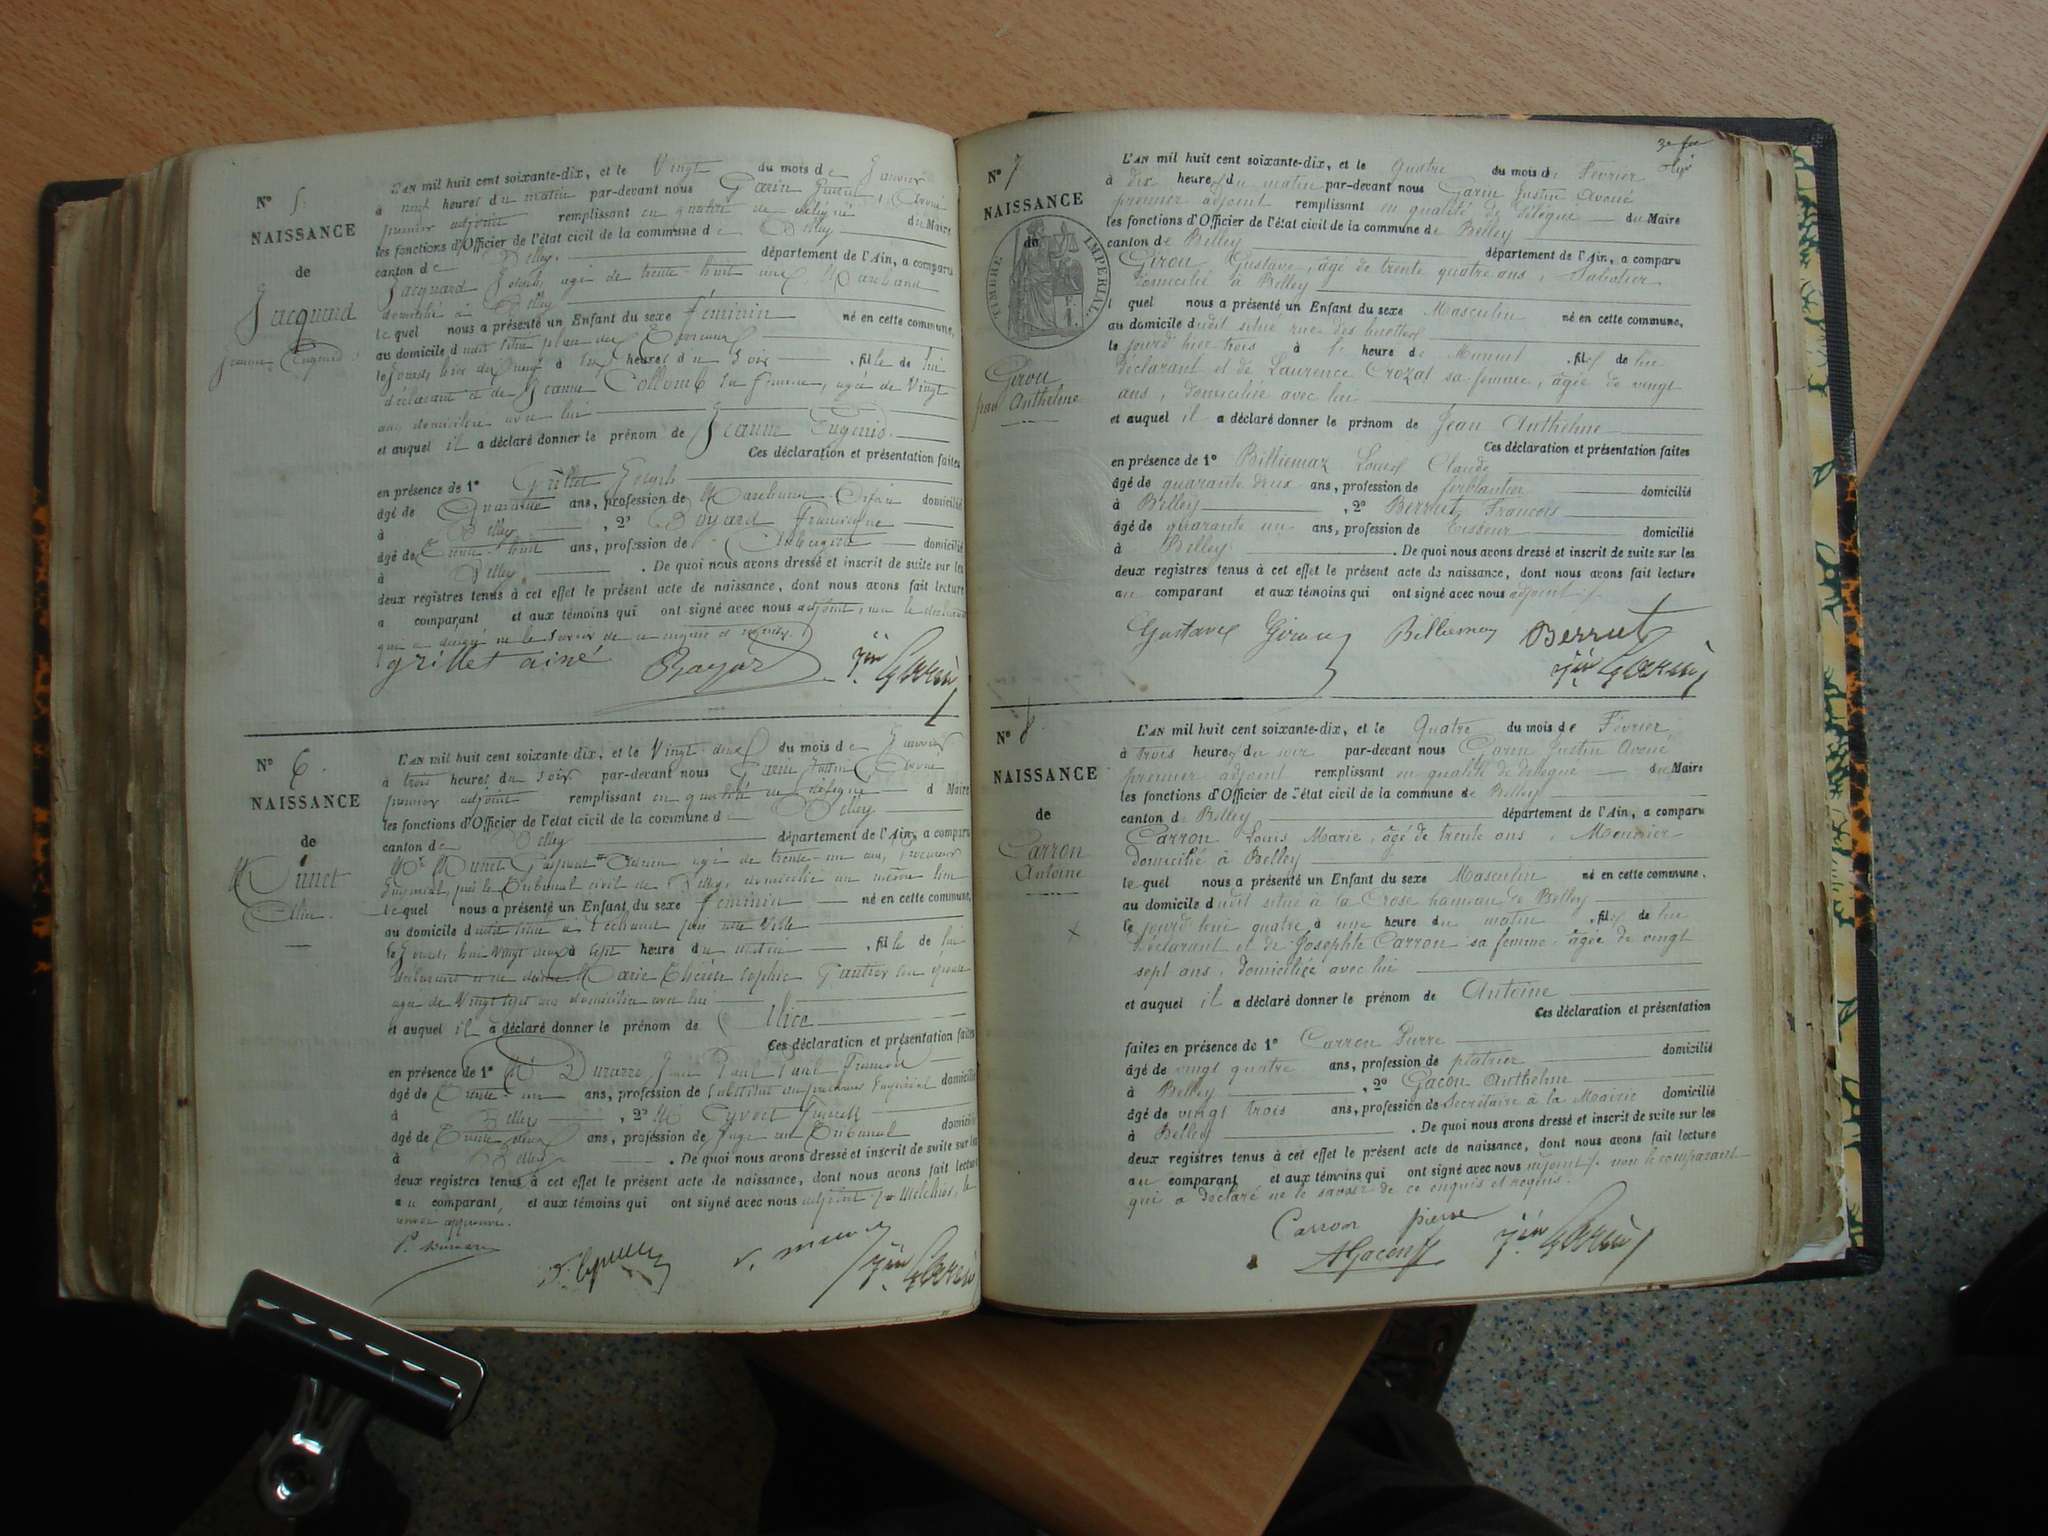 N° 5.
NAISSANCE
de
Jacquard
Jeanne Eugénie
L'AN mil huit cent soixante-dix, et le Vingt du mois de Janvier
à neuf heures du matin par-devant nous Garin Justin, Avoué
premier adjoint remplissant en qualité de délégué du Maire
les fonctions d'Officier de l'état civil de la commune de Belley
canton de Belley département de l'Ain, a comparu
Jacquard Joseph, agé de trente-huit ans, Marchand
domicilié à Belley
le quel nous a présenté un Enfant du sexe féminin né en cette commune,
au domicile dudit situé place des Terreaux
le jourd. hier dix neuf à six heures du soir , fille de lui
déclarant et de Jeanne Collomb sa femme, agée de Vingt
ans domiciliée avec lui
et auquel il a déclaré donner le prénom de Jeanne Eugénie.
Ces déclaration et présentation faites
en présence de 1° Grillet Joseph
âgé de Quarante ans, profession de Marchand domicilié
à Belley , 2° Boyard
âgé de Trente-huit ans, profession de Aubergiste domicilié
à Belley . De quoi nous avons dressé et inscrit de suite sur les
deux registres tenus à cet effet le présent acte de naissance, dont nous avons fait lecture
a comparant et aux témoins qui ont signé avec nous adjoint, non le déclarant
qui a déclaré ne le savoir de ce enquis et requis.
grillet ainé Jin Garin
N° 6.
NAISSANCE
de
Munet
Alice.
L'AN mil huit cent soixante-dix, et le Vingt-deux du mois de Janvier
à trois heures du soir par-devant nous Garin Justin, Avoué
premier adjoint remplissant en qualité de délégué d Maire
les fonctions d'Officier de l'état civil de la commune de Belley
canton de Belley département de l'Ain, a comparu
Mr Munet agé de trente-un ans, Procureur
Impérial près le Tribunal civil de Belley, domicilié au même lieu
le quel nous a présenté un Enfant du sexe féminin né en cette commune,
au domicile dudit situé à
le Jourd. hui vingt deux à sept heure du matin , fille de lui
déclarant et de dame Marie Sophie Gautier son épouse
agée de Vingt sept ans domiciliée avec lui
et auquel il a déclaré donner le prénom de Alice
Ces déclaration et présentation faites
en présence de 1° Mr Durazzo Jean Paul
âgé de Trente-un ans, profession de Substitut du procureur Impérial domicilié
à Belley , 2° Mr
âgé de Trente deux ans, profession de Juge au Tribunal domicilié
à Belley . De quoi nous avons dressé et inscrit de suite sur les
deux registres tenus à cet effet le présent acte de naissance, dont nous avons fait lecture
au comparant, et aux témoins qui ont signé avec nous adjoint
Jin Garin
N° 7
NAISSANCE
de
TIMBRE IMPÉRIAL
Girou
Jean Anthelme
L'AN mil huit cent soixante-dix, et le Quatre du mois de Février
à dix heures du matin par-devant nous Garin Justin Avoué
premier adjoint remplissant en qualité de délégué du Maire
les fonctions d'Officier de l'état civil de la commune de Belley
canton de Belley département de l'Ain, a comparu
Girou Gustave, âgé de trente quatre ans, Sabotier
domicilié à Belley
l quel nous a présenté un Enfant du sexe Masculin né en cette commune,
au domicile dudit situé rue des
le jourd hier trois à heure de Minuit , fils de lui
déclarant et de Laurence Crozat sa femme, âgée de vingt
ans, domiciliée avec lui
et auquel il a déclaré donner le prénom de Jean Anthelme
Ces déclaration et présentation faites
en présence de 1° Billiemaz Louis Claude
âgé de quarante deux ans, profession de ferblantier domicilié
à Belley , 2° Berrut, François
âgé de quarante un ans, profession de Tisseur domicilié
à Belley . De quoi nous avons dressé et inscrit de suite sur les
deux registres tenus à cet effet le présent acte de naissance, dont nous avons fait lecture
au comparant et aux témoins qui ont signé avec nous adjoint
Gustave Girou Billiemaz Berrut
Jin Garin
N° 8
NAISSANCE
de
Carron
Antoine
L'AN mil huit cent soixante-dix, et le Quatre du mois de Février,
à trois heures du soir par-devant nous Garin Justin avoué
premier adjoint remplissant en qualité de délégué du Maire
les fonctions d'Officier de l'état civil de la commune de Belley
canton de Belley département de l'Ain, a comparu
Carron Louis Marie, âgé de trente ans, Meunier
domicilié à Belley
le quel nous a présenté un Enfant du sexe Masculin né en cette commune,
au domicile dudit situé à la Crose hameau de Belley
le jourd hui quatre à une heure du matin , fils de lui
déclarant et de Josephte Carron sa femme, âgée de vingt
sept ans, domiciliée avec lui
et auquel il a déclaré donner le prénom de Antoine
Ces déclaration et présentation
faites en présence de 1° Carron Pierre
âgé de vingt quatre ans, profession de platrier domicilié
à Belley , 2° Gacon Anthelme
âgé de vingt trois ans, profession de Secrétaire à la Mairie domicilié
à Belley . De quoi nous avons dressé et inscrit de suite sur les
deux registres tenus à cet effet le présent acte de naissance, dont nous avons fait lecture
au comparant et aux témoins qui ont signé avec nous adjoint non le comparant
qui a déclaré ne le savoir de ce enquis et requis.
Carron pierre Jin Garin
AGacon